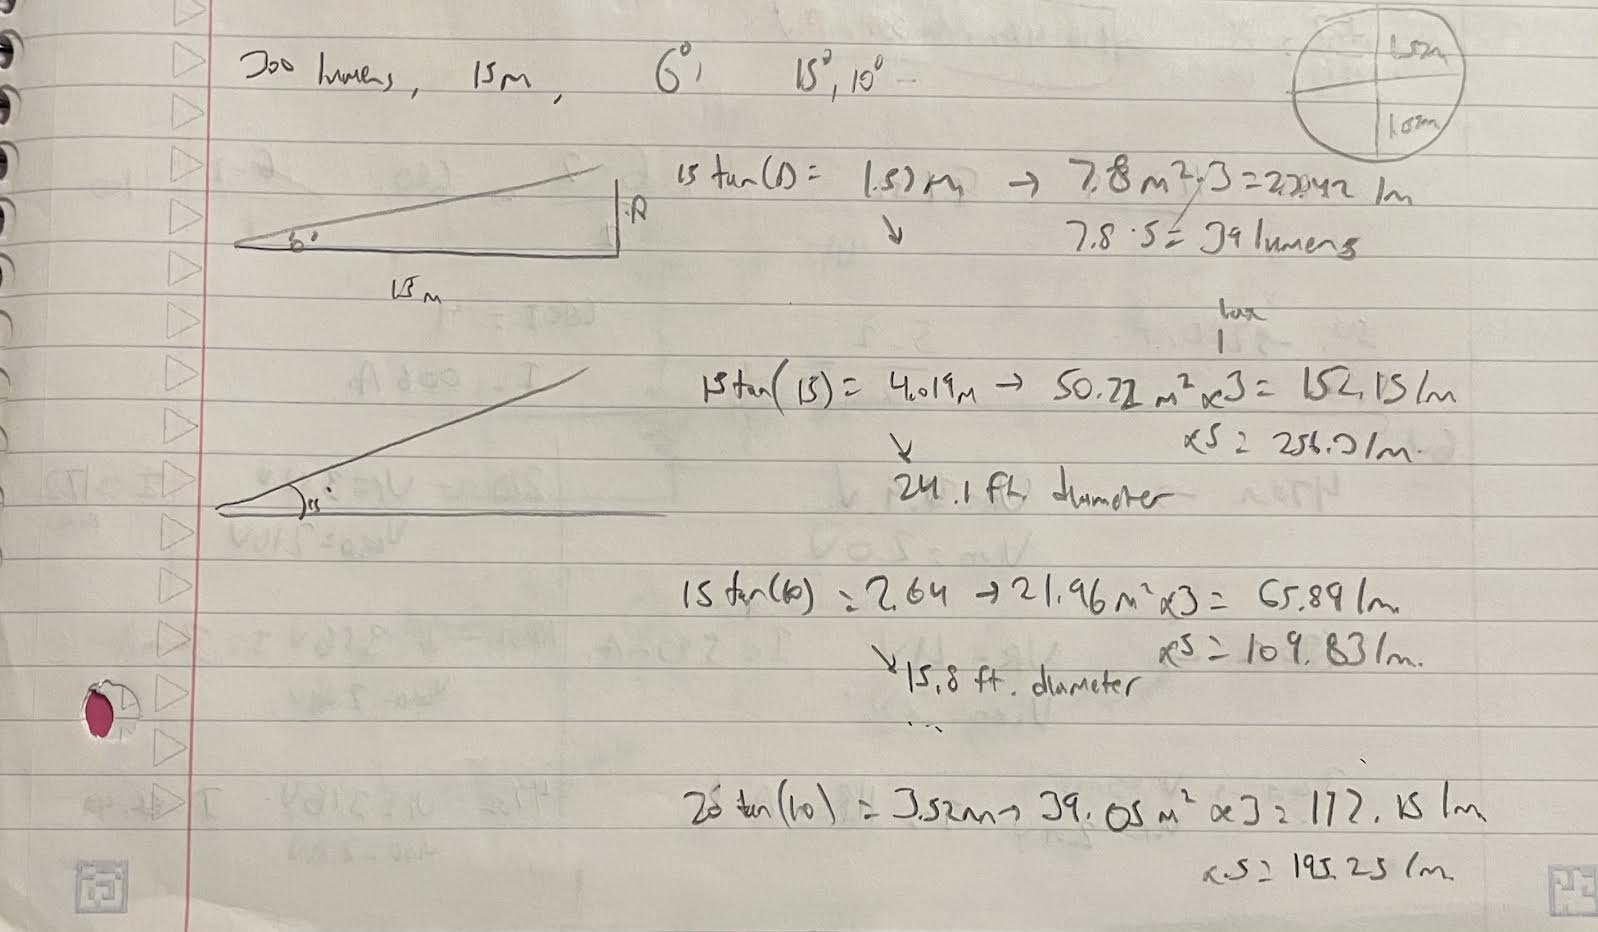 300 lumens, 15m, 6°, 15°, 10°
1.52m
1.52m
15 tan(6) = 1.57m → 7.8 m² · 3 = 23.42 lm
7.8 · 5 = 39 lumens
6°
R
15m
lux
15 tan(15) = 4.019m → 50.72 m² x3 = 152.15 lm
x5 = 256.3 lm.
24.1 ft. diameter
15°
15 tan(10) = 2.64 → 21.96 m² x3 = 65.89 lm
x5 = 109.83 lm.
15.8 ft. diameter
...
20 tan(10) = 3.52m → 39.05 m² x3 = 117.15 lm
x5 = 195.25 lm